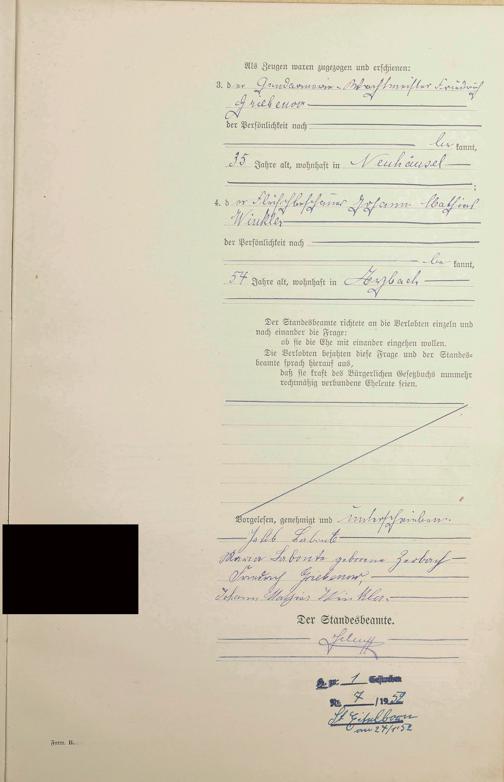 Als Zeugen waren zugezogen und erschienen:
3. d er Gendarmerie-Wachtmeister Friedrich
Griebenow
der Persönlichkeit nach
be kannt,
35 Jahre alt, wohnhaft in Neuhäusel
;
4. d er Fleischbeschauer Johann Mathias
Winkler
der Persönlichkeit nach
be kannt,
54 Jahre alt, wohnhaft in Arzbach
Der Standesbeamte richtete an die Verlobten einzeln und
nach einander die Frage:
ob sie die Ehe mit einander eingehen wollen.
Die Verlobten bejahten diese Frage und der Standes-
beamte sprach hierauf aus,
daß sie kraft des Bürgerlichen Gesetzbuchs nunmehr
rechtmäßig verbundene Eheleute seien.
Vorgelesen, genehmigt und unterschrieben.
Jakob Labonte
Maria Labonte geborene Zerbach
Friedrich Griebenow,
Johann Mathias Winkler.
Der Standesbeamte.
zu 1 Gestorben
Nr. 7 /1952
Eitelborn
am 24/ 52
Form. B.